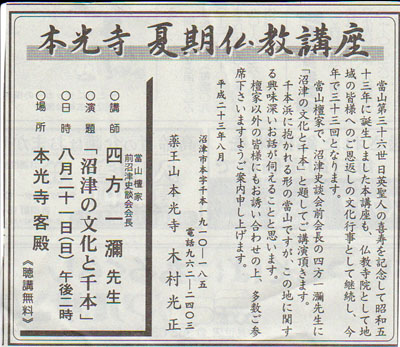 本光寺 夏期仏教講座
當山第三十六世日英聖人の喜寿を記念して昭和五
十三年に誕生しました本講座も、仏教寺院として地
域の皆様へのご恩返しの文化行事として継続し、今
年で三十三回となります。
當山檀家で、沼津史談会前会長の四方一瀰先生に
「沼津の文化と千本」と題してご講演頂きます。
千本浜に抱かれる形の當山ですが、この地に関す
る興味深いお話が伺えることと思います。
檀家以外の皆様にもお誘い合わせの上、多数ご参
席下さいますようご案内申し上げます。
平成二十三年八月
沼津市本字千本一九一〇ー八五
電話九六二ー二四〇三
薬王山本光寺 木村光正
○講師 當山檀家 前沼津史談会会長 四方一瀰先生
○演題 「沼津の文化と千本」
○日時 八月二十一日(日)午後二時
○場所 本光寺客殿
《聴講無料》